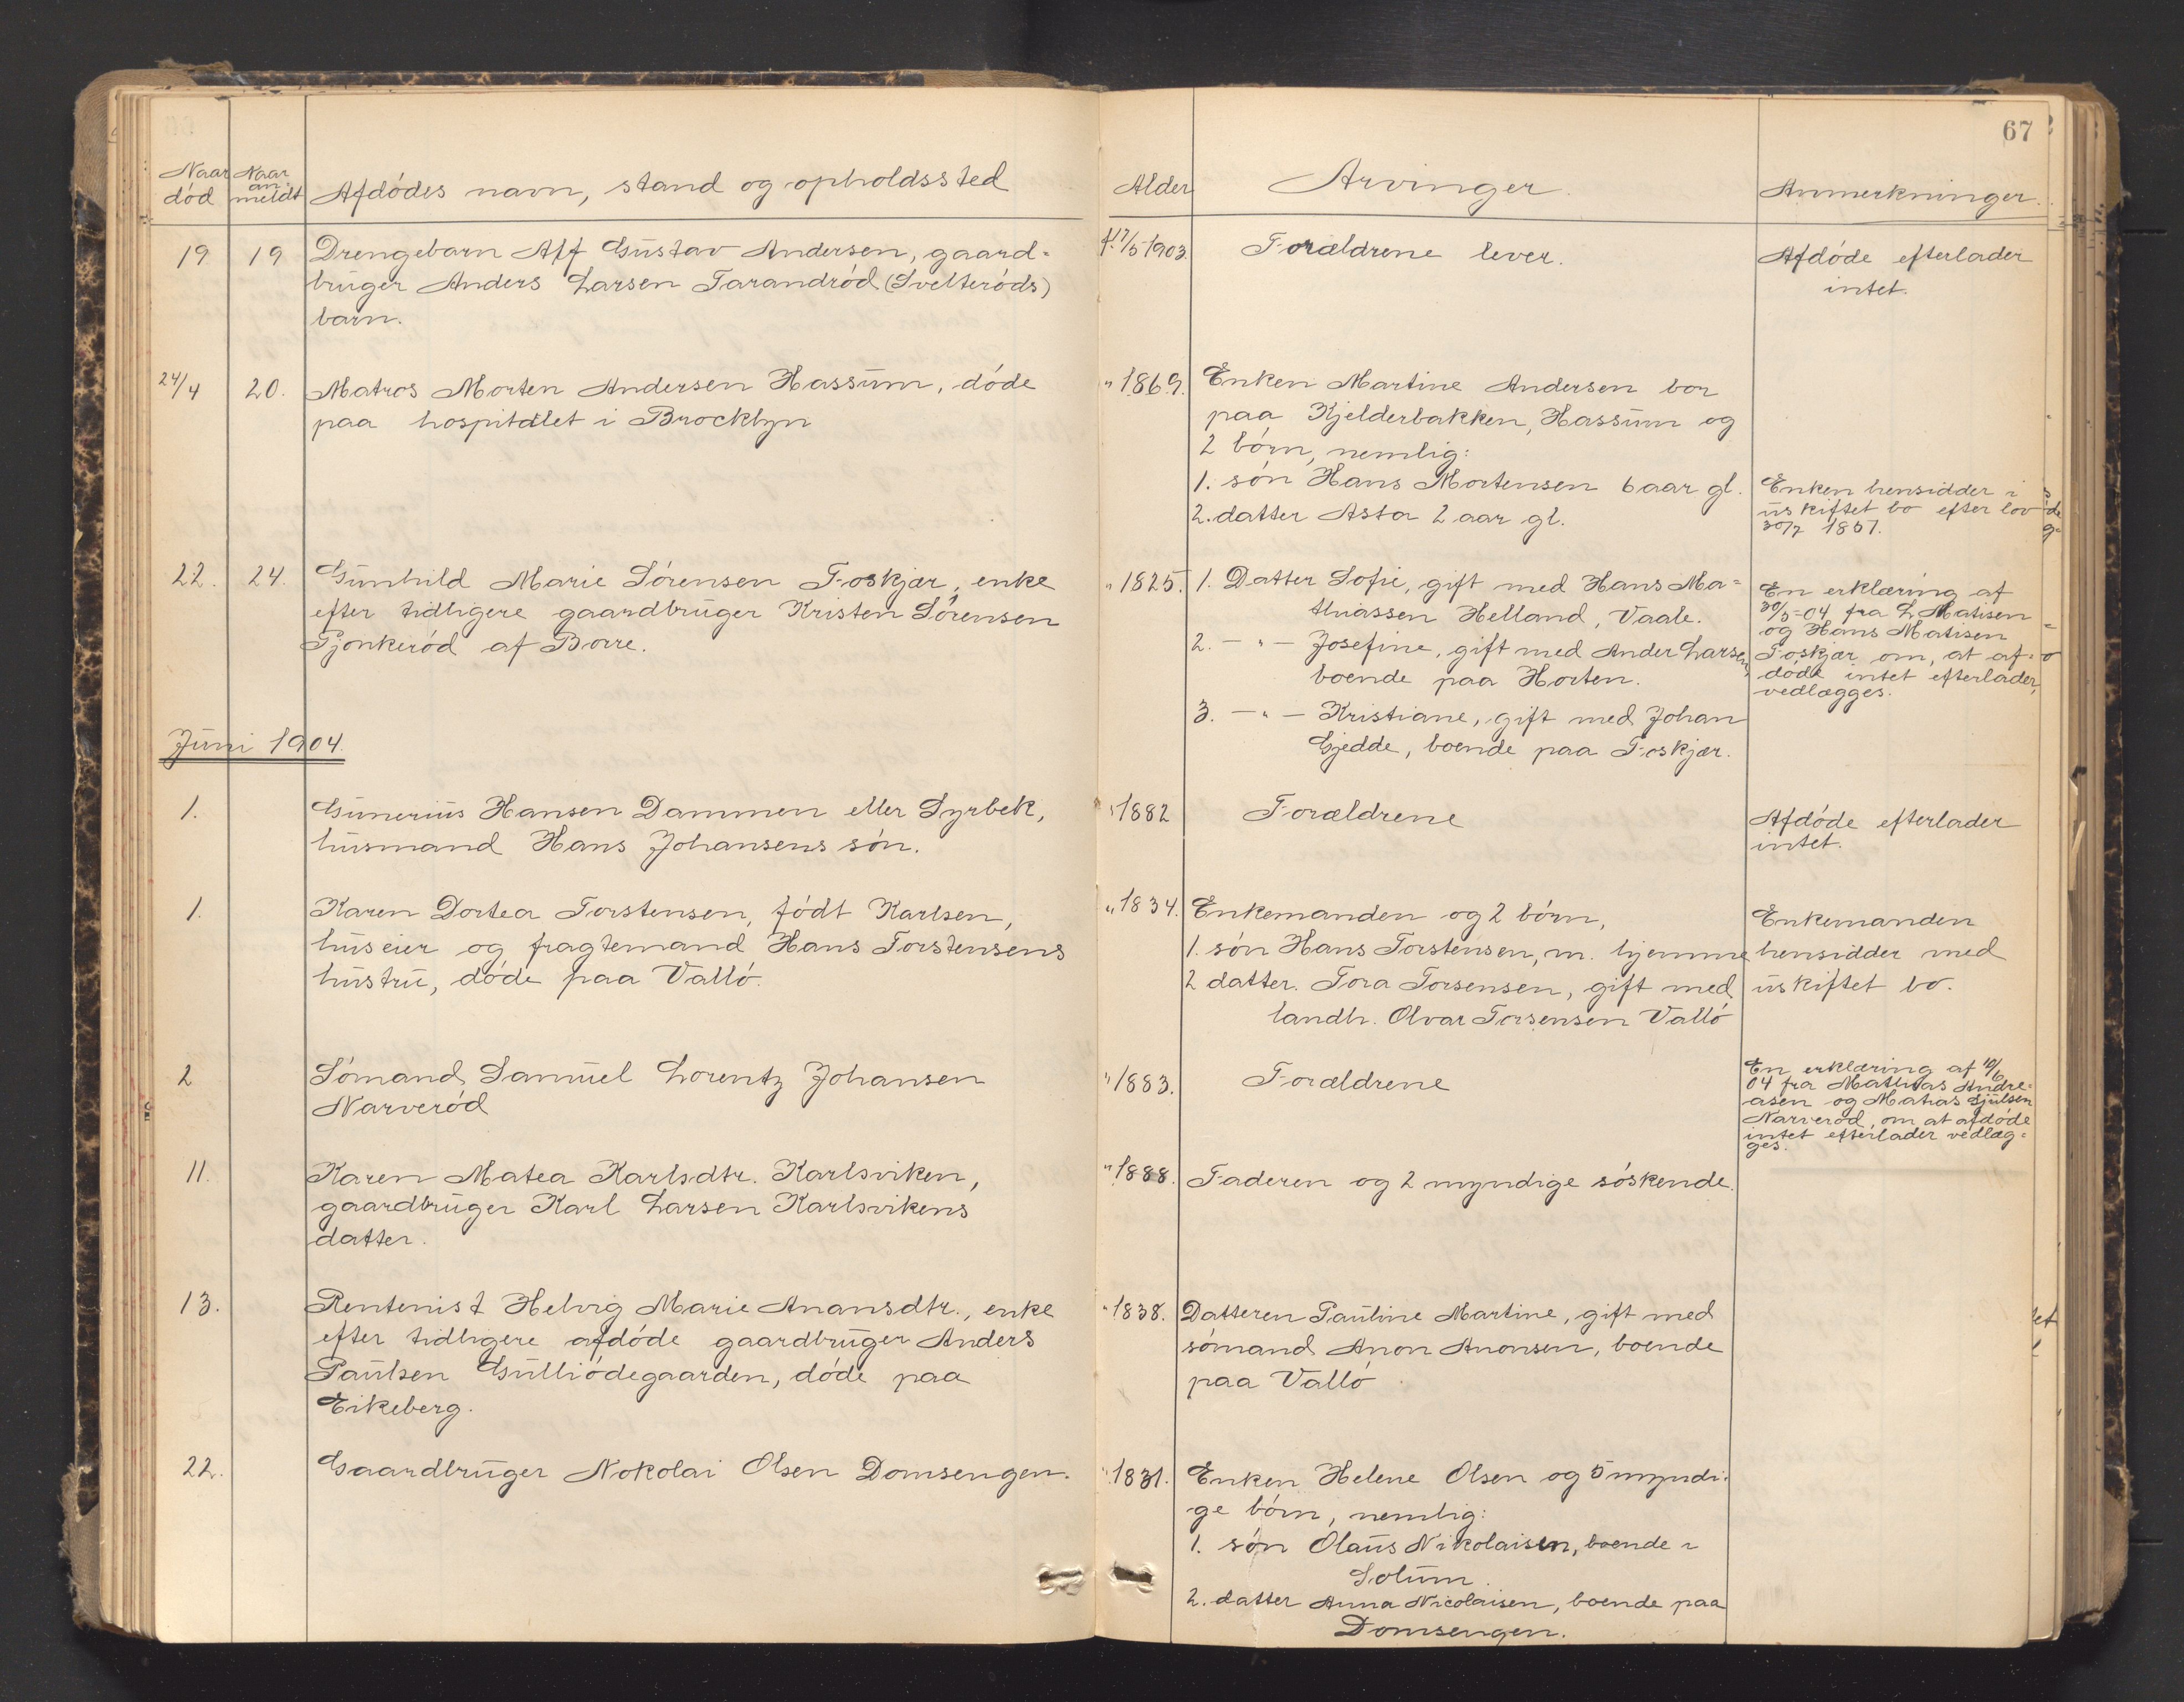 67
Naar død
Naar anmeldt
Afdødes navn, stand og opholdssted
Alder
Arvinger.
Anmerkninger.
19
19
Drengebarn Alf Gustav Andersen, gaard-
bruger Anders Larsen Tarandrød (Svelterøds)
barn.
f. 17/5 1903.
Forældrene lever.
Afdøde efterlader
intet.
24/4
20.
Matros Morten Andersen Hassum, døde
paa hospitalet i Brocklyn
" 1869.
Enken Martine Andersen bor
paa Kjelderbakken, Hassum og
2 børn, nemlig:
1. søn Hans Mortensen 6 aar gl.
2. datter Asta 2 aar gl.
Enken hensidder i
uskiftet bo efter lov
30/7 1851.
22.
24.
Gunhild Marie Sørensen Foskjær, enke
efter tidligere gaardbruger Kristen Sørensen
Pjonkerød af Borre.
" 1825.
1. Datter Sofie, gift med Hans Ma-
thiassen Helland, Vaale.
2. — " — Josefine, gift med Ander Larsen,
boende paa Horten.
3. — " — Kristiane, gift med Johan
Gjedde, boende paa Foskjær.
En erklæring af
30/5-04 fra L. Matisen
og Hans Matisen
Foskjær om, at af-
døde intet efterlader,
vedlægges.
Juni 1904.
1.
Gunerius Hansen Dammen eller Syrbek,
husmand Hans Johansens søn.
" 1882
Forældrene
Afdøde efterlader
intet.
1.
Karen Dortea Torstensen, født Karlsen,
huseier og fragtemand Hans Torstensens
hustru, døde paa Vallø.
" 1834.
Enkemanden og 2 børn,
1. søn Hans Torstensen, m. hjemme
2 datter. Tora Torsensen, gift med
landh. Olvar Torsensen Vallø
Enkemanden
hensidder med
uskiftet bo.
2
Sømand Samuel Lorentz Johansen
Narverød
" 1883.
Forældrene
En erklæring af 10/6
04 fra Mathias Andre-
asen og Matias Gjulsen
Narverød, om at afdøde
intet efterlader vedlæg-
ges.
11.
Karen Matea Karlsdtr. Karlsviken,
gaardbruger Karl Larsen Karlsvikens
datter.
" 1888.
Faderen og 2 myndige søskende.
13.
Rentenist Helvig Marie Anansdtr., enke
efter tidligere afdøde gaardbruger Anders
Paulsen Gulliødegaarden, døde paa
Eikeberg.
" 1838.
Datteren Pauline Martine, gift med
sømand Anon Anonsen, boende
paa Vallø
22.
Gaardbruger Nokolai Olsen Domsengen.
" 1831.
Enken Helene Olsen og 5 myndi-
ge børn, nemlig:
1. søn Olaus Nikolaisen, boende i
Solum.
2. datter Anna Nicolaisen, boende paa
Domsengen.